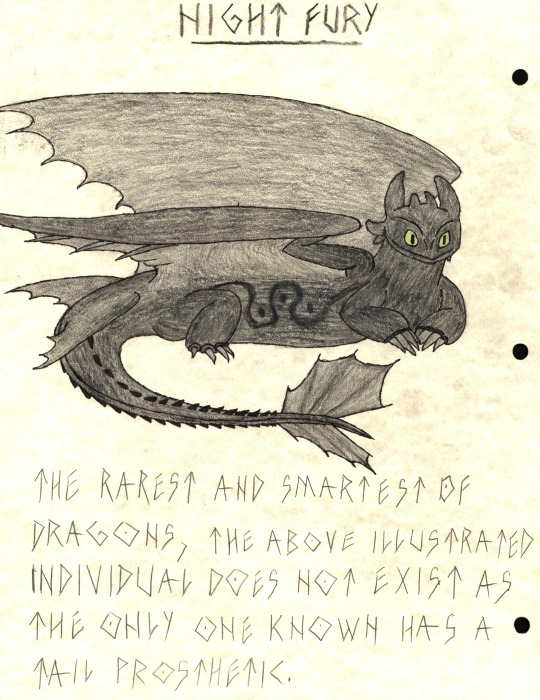 NIGHT FURY
THE RAREST AND SMARTEST OF
DRAGONS, THE ABOVE ILLUSTRATED
INDIVIDUAL DOES NOT EXIST AS
THE ONLY ONE KNOWN HAS A
TAIL PROSTHETIC.